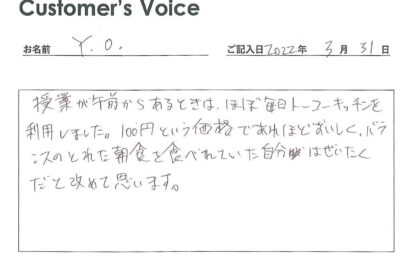 Customer's Voice
お名前 Y.O. ご記入日 2022年 3月 31日
授業が午前からあるときは、ほぼ毎日トーコーキッチンを
利用しました。100円という価格であれほどおいしく、バラ
ンスのとれた朝食を食べれていた自分はぜいたく
だと改めて思います。